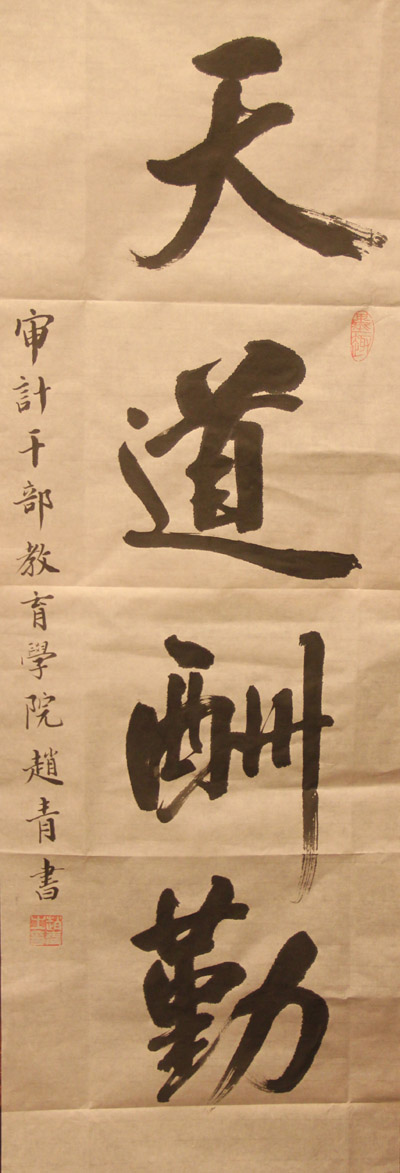 天道酬勤
审計干部教育學院趙青書